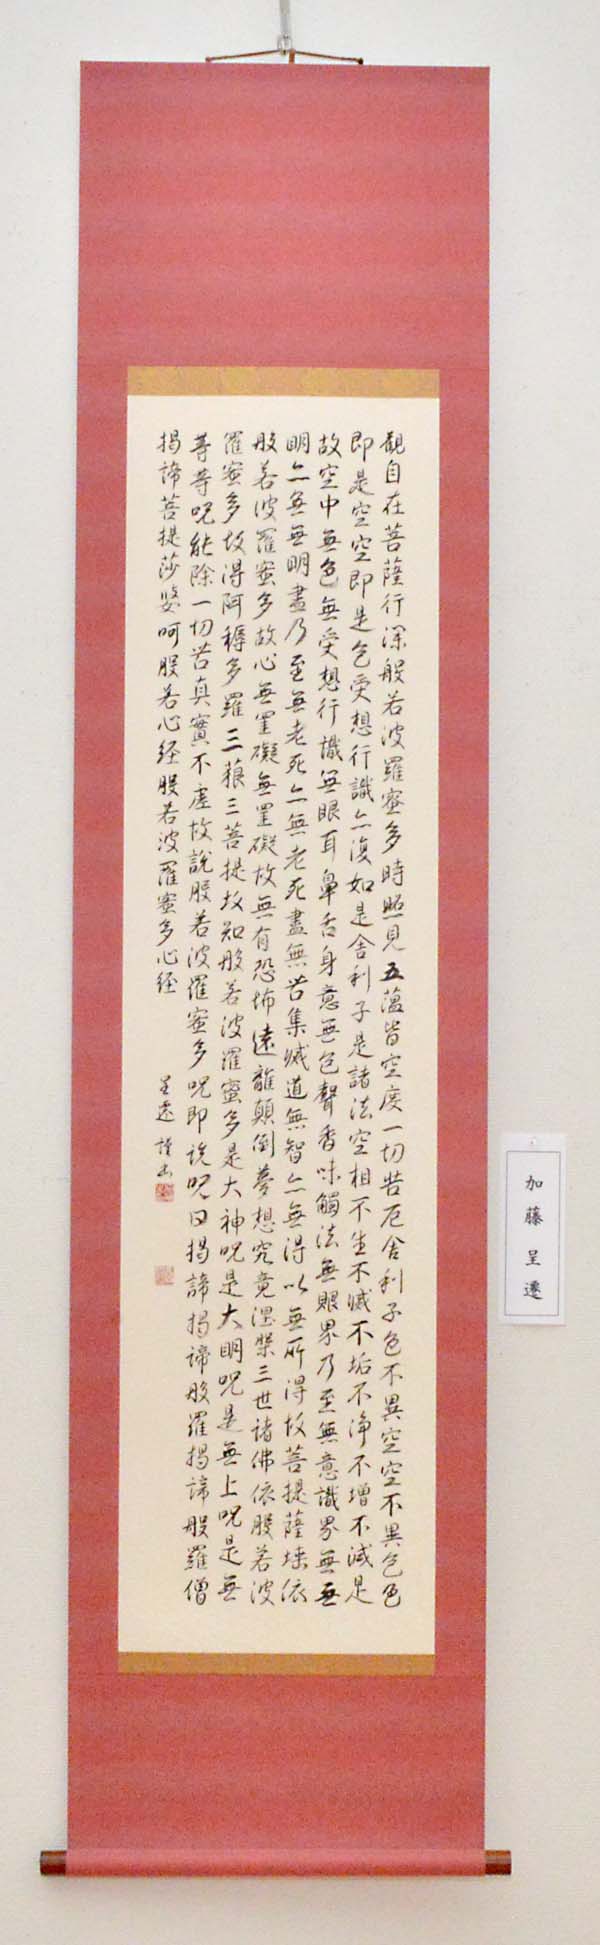 觀自在菩薩行深般若波羅蜜多時照見五蘊皆空度一切苦厄舍利子色不異空空不異色色
即是空空即是色受想行識亦復如是舍利子是諸法空相不生不滅不垢不淨不增不減是
故空中無色無受想行識無眼耳鼻舌身意無色聲香味觸法無眼界乃至無意識界無無
明亦無無明盡乃至無老死亦無老死盡無苦集滅道無智亦無得以無所得故菩提薩埵依
般若波羅蜜多故心無罣礙無罣礙故無有恐怖遠離顛倒夢想究竟涅槃三世諸佛依般若波
羅蜜多故得阿耨多羅三藐三菩提故知般若波羅蜜多是大神呪是大明呪是無上呪是無
等等呪能除一切苦真實不虛故說般若波羅蜜多呪即說呪曰揭諦揭諦般羅揭諦般羅僧
揭諦菩提莎婆呵般若心経般若波羅蜜多心経
呈遷 謹書
加藤 呈遷